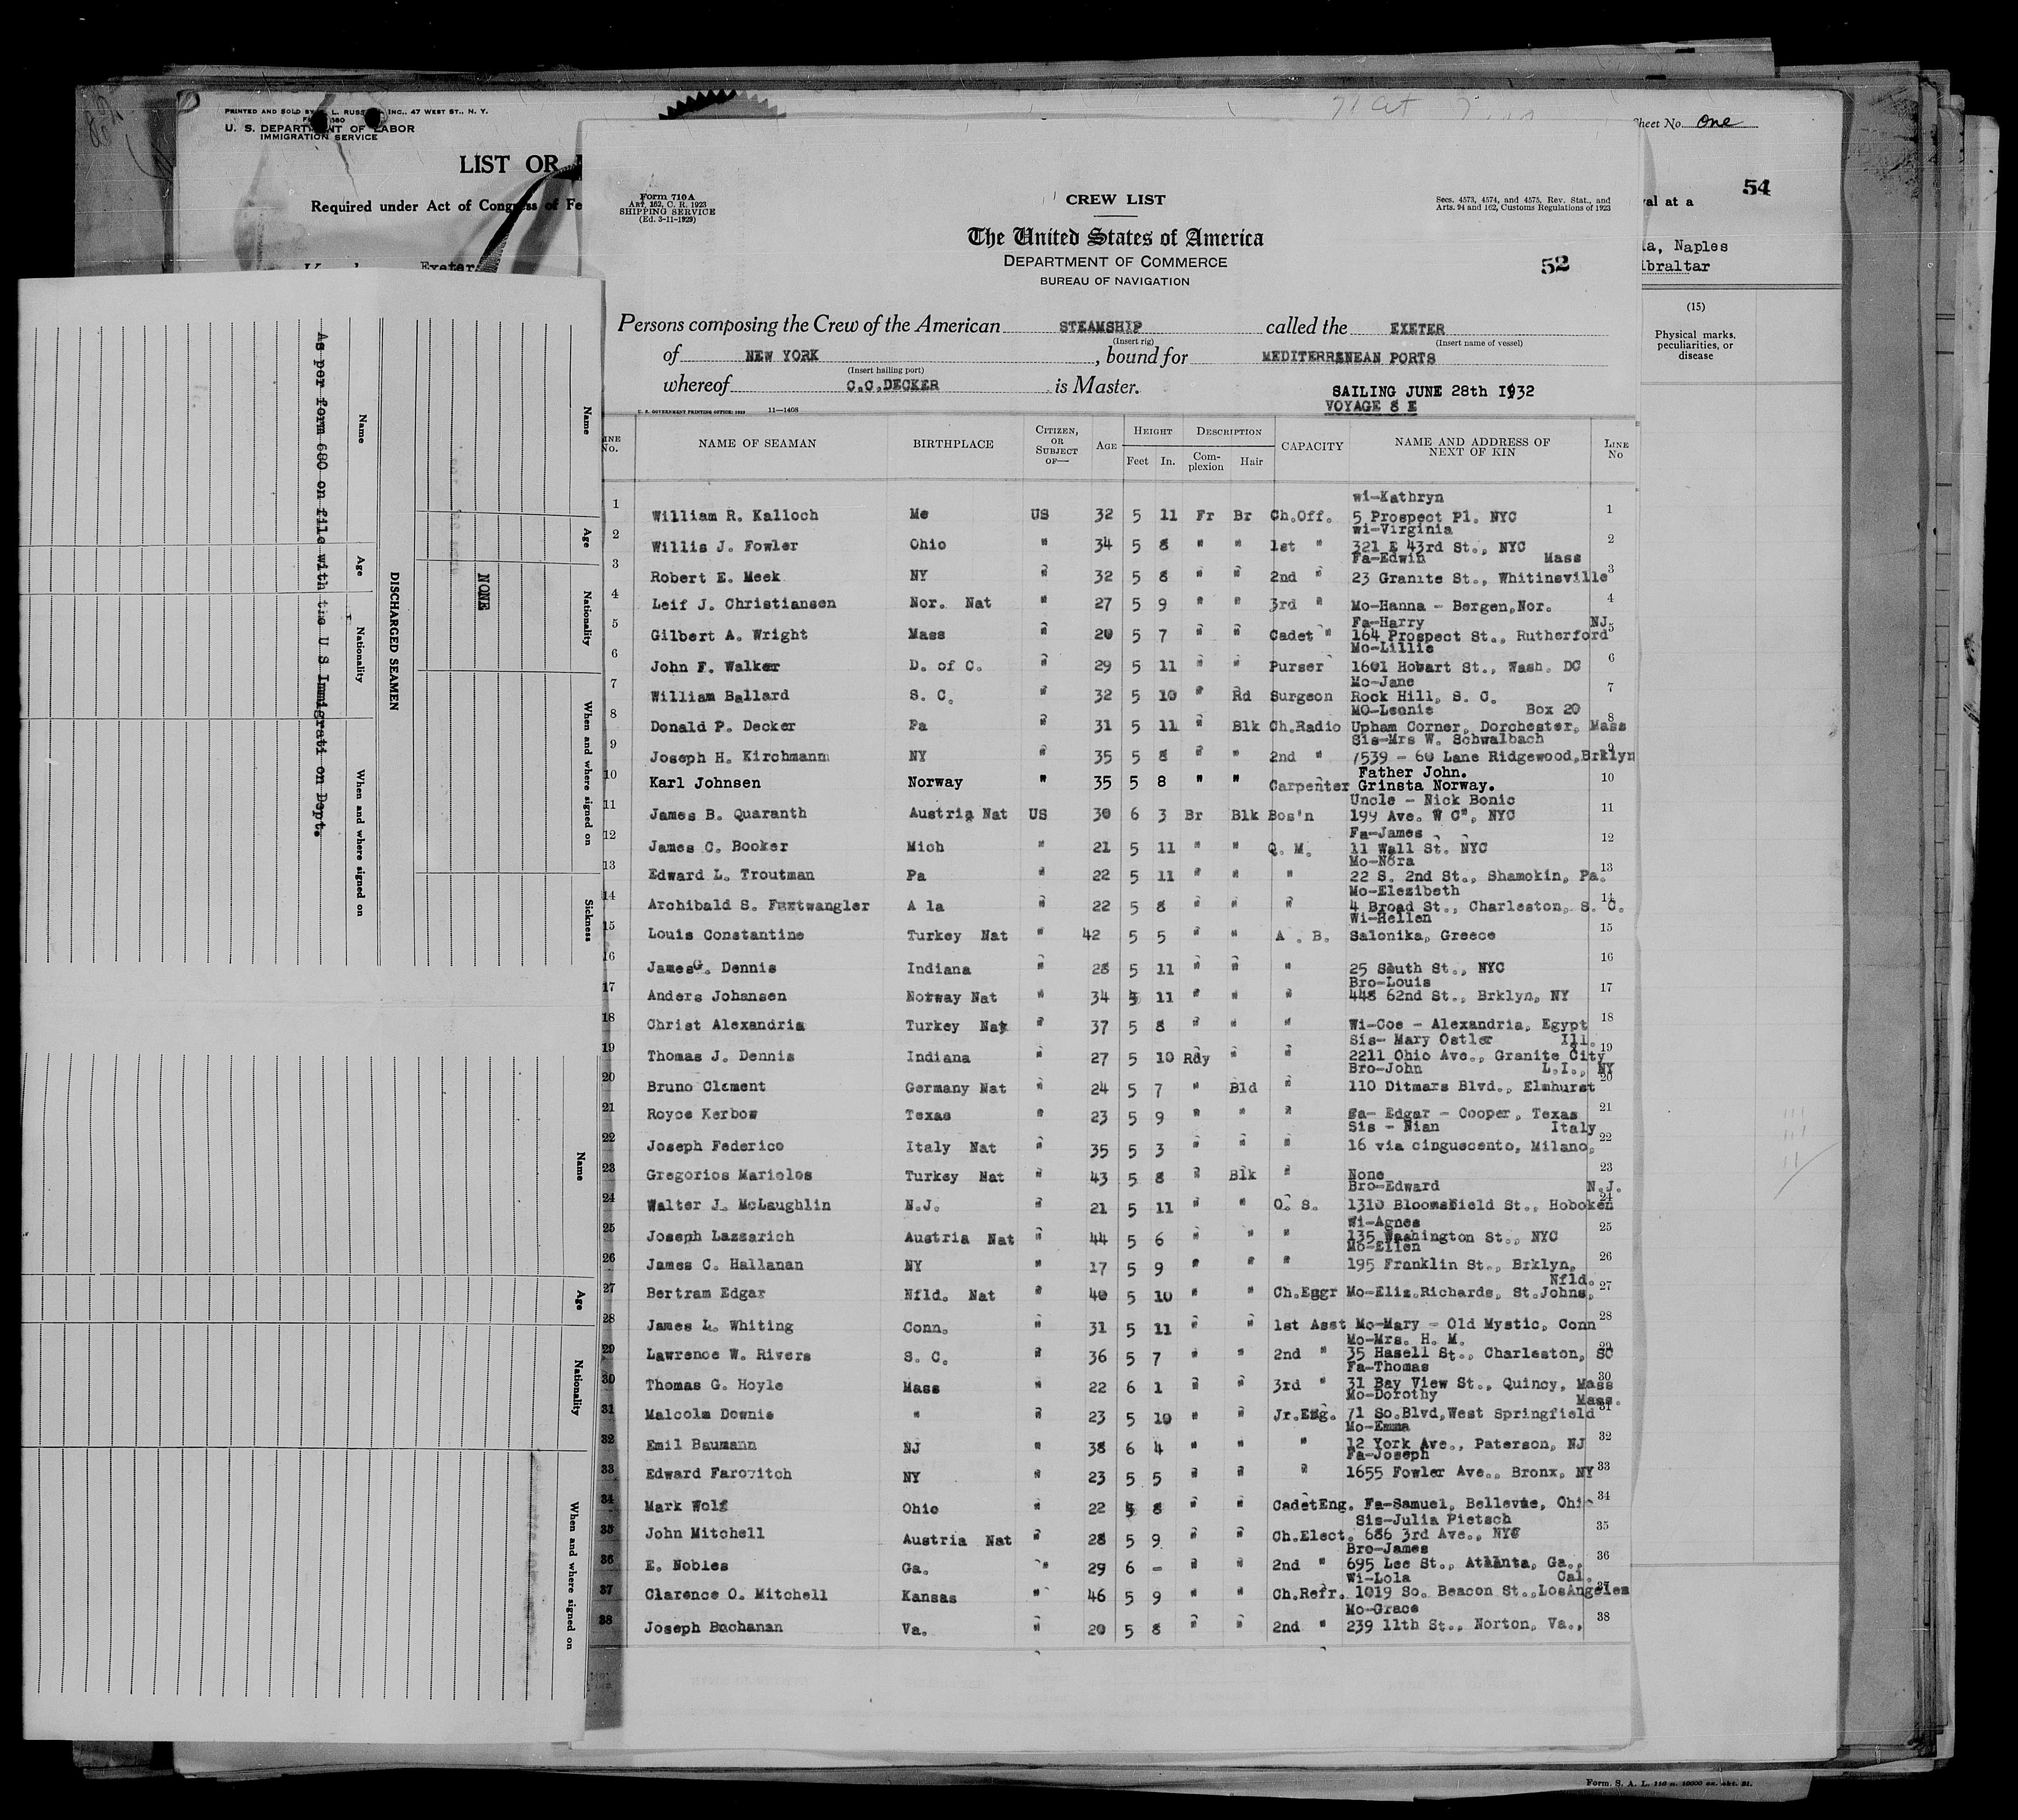 PRINTED AND SOLD BY L. RUSS INC., 47 WEST ST., N. Y.
U. S. DEPARTMENT OF LABOR
IMMIGRATION SERVICE
LIST OR
Required under Act of Congress of Fe
Exeter
Sheet No. One
54
val at a
ia, Naples
ibraltar
(15)
Physical marks, peculiarities, or disease
Form 710A
Art. 162, C. R. 1923
SHIPPING SERVICE
(Ed. 3-11-1929)
CREW LIST
Secs. 4573, 4574, and 4575, Rev. Stat., and
Arts. 94 and 162, Customs Regulations of 1923
The United States of America
DEPARTMENT OF COMMERCE
BUREAU OF NAVIGATION
52
Persons composing the Crew of the American STEAMSHIP called the EXETER
(Insert rig) (Insert name of vessel)
of NEW YORK, bound for MEDITERRANEAN PORTS
(Insert hailing port)
whereof C.C.DECKER is Master.
SAILING JUNE 28th 1932
VOYAGE 8 E
U. S. GOVERNMENT PRINTING OFFICE: 1929 11—1408
LINE No. NAME OF SEAMAN BIRTHPLACE CITIZEN, OR SUBJECT OF— AGE HEIGHT Feet In. DESCRIPTION Complexion Hair CAPACITY NAME AND ADDRESS OF NEXT OF KIN LINE No
wi-Kathryn
1 William R. Kalloch Me US 32 5 11 Fr Br Ch.Off. 5 Prospect Pl. NYC 1
wi-Virginia
2 Willis J. Fowler Ohio " 34 5 8 " " 1st " 321 E 43rd St., NYC 2
Fa-Edwin Mass
3 Robert E. Meek NY " 32 5 8 " " 2nd " 23 Granite St., Whitinsville 3
4 Leif J. Christiansen Nor. Nat " 27 5 9 " " 3rd " Mo-Hanna - Bergen,Nor. 4
Fa-Harry NJ
5 Gilbert A. Wright Mass " 20 5 7 " " Cadet " 164 Prospect St., Rutherford 5
Mo-Lillie
6 John F. Walker D. of C. " 29 5 11 " " Purser 1601 Hobart St., Wash. DC 6
Mo-Jane
7 William Ballard S. C. " 32 5 10 " Rd Surgeon Rock Hill, S. C. 7
MO-Leonie Box 20
8 Donald P. Decker Pa " 31 5 11 " Blk Ch.Radio Upham Corner, Dorchester, Mass 8
Sis-Mrs W. Schwalbach
9 Joseph H. Kirchmann NY " 35 5 8 " " 2nd " 7539 - 60 Lane Ridgewood,Brklyn 9
Father John.
10 Karl Johnsen Norway " 35 5 8 " " Carpenter Grinsta Norway. 10
Uncle - Nick Bonic
11 James B. Quaranth Austria Nat US 30 6 3 Br Blk Bos'n 199 Ave. W C", NYC 11
Fa-James
12 James C. Booker Mich " 21 5 11 " " Q. M. 11 Wall St. NYC 12
Mo-Nora
13 Edward L. Troutman Pa " 22 5 11 " " " 22 S. 2nd St., Shamokin, Pa. 13
Mo-Elezibeth
14 Archibald S. Furtwangler A la " 22 5 8 " " " 4 Broad St., Charleston, S. C. 14
Wi-Hellen
15 Louis Constantine Turkey Nat " 42 5 5 " " A . B. Salonika, Greece 15
16 James G. Dennis Indiana " 28 5 11 " " " 25 South St., NYC 16
Bro-Louis
17 Anders Johansen Norway Nat " 34 5 11 " " " 448 62nd St., Brklyn, NY 17
18 Christ Alexandria Turkey Nat " 37 5 8 " " " Wi-Coe - Alexandria, Egypt 18
Sis- Mary Ostler Ill.
19 Thomas J. Dennis Indiana " 27 5 10 Rdy " " 2211 Ohio Ave., Granite City 19
Bro-John L.I., NY
20 Bruno Clement Germany Nat " 24 5 7 " Bld " 110 Ditmars Blvd., Elmhurst 20
21 Royce Kerbow Texas " 23 5 9 " " " Fa- Edgar - Cooper, Texas 21
Sis - Nian Italy
22 Joseph Federico Italy Nat " 35 5 3 " " " 16 via cinguecento, Milano, 22
23 Gregorios Marioles Turkey Nat " 43 5 8 " Blk " None 23
Bro-Edward N.J.
24 Walter J. McLaughlin N.J. " 21 5 11 " " O. S. 1310 Bloomsfield St., Hoboken 24
Wi-Agnes
25 Joseph Lazzarich Austria Nat " 44 5 6 " " " 135 Washington St., NYC 25
Mo-Ellen
26 James C. Hallanan NY " 17 5 9 " " " 195 Franklin St., Brklyn, 26
Nfld.
27 Bertram Edgar Nfld. Nat " 40 5 10 " " Ch.Eggr Mo-Eliz.Richards, St.Johns, 27
28 James L. Whiting Conn. " 31 5 11 " " 1st Asst Mo-Mary - Old Mystic, Conn 28
Mo-Mrs. H. M.
29 Lawrence W. Rivers S. C. " 36 5 7 " " 2nd " 35 Hasell St., Charleston, SC 29
Fa-Thomas
30 Thomas G. Hoyle Mass " 22 6 1 " " 3rd " 31 Bay View St., Quincy, Mass 30
Mo-Dorothy Mass.
31 Malcolm Downie " " 23 5 10 " " Jr.Eng. 71 So.Blvd,West Springfield 31
Mo-Emma
32 Emil Baumann NJ " 38 6 4 " " " 12 York Ave., Paterson, NJ 32
Fa-Joseph
33 Edward Farovitch NY " 23 5 5 " " " 1655 Fowler Ave., Bronx, NY 33
34 Mark Wolf Ohio " 22 5 8 " " CadetEng. Fa-Samuel, Bellevue, Ohio 34
Sis-Julia Pietsch
35 John Mitchell Austria Nat " 28 5 9 " " Ch.Elect. 686 3rd Ave., NYC 35
Bro-James
36 E. Nobles Ga. " 29 6 - " " 2nd " 695 Lee St., Atlanta, Ga., 36
Wi-Lola Cal.
37 Clarence O. Mitchell Kansas " 46 5 9 " " Ch.Refr. 1019 So. Beacon St.,LosAngeles 37
Mo-Grace
38 Joseph Buchanan Va. " 20 5 8 " " 2nd " 239 11th St., Norton, Va., 38
Name Age Nationality When and where signed on Sickness
NONE
DISCHARGED SEAMEN
Name Age Nationality When and where signed on
As per form 680 on file with the U S Immigrati on Dept.
Name Age Nationality When and where signed on
Form. S. A. L. 116 n. 10000 ex. okt. 31.